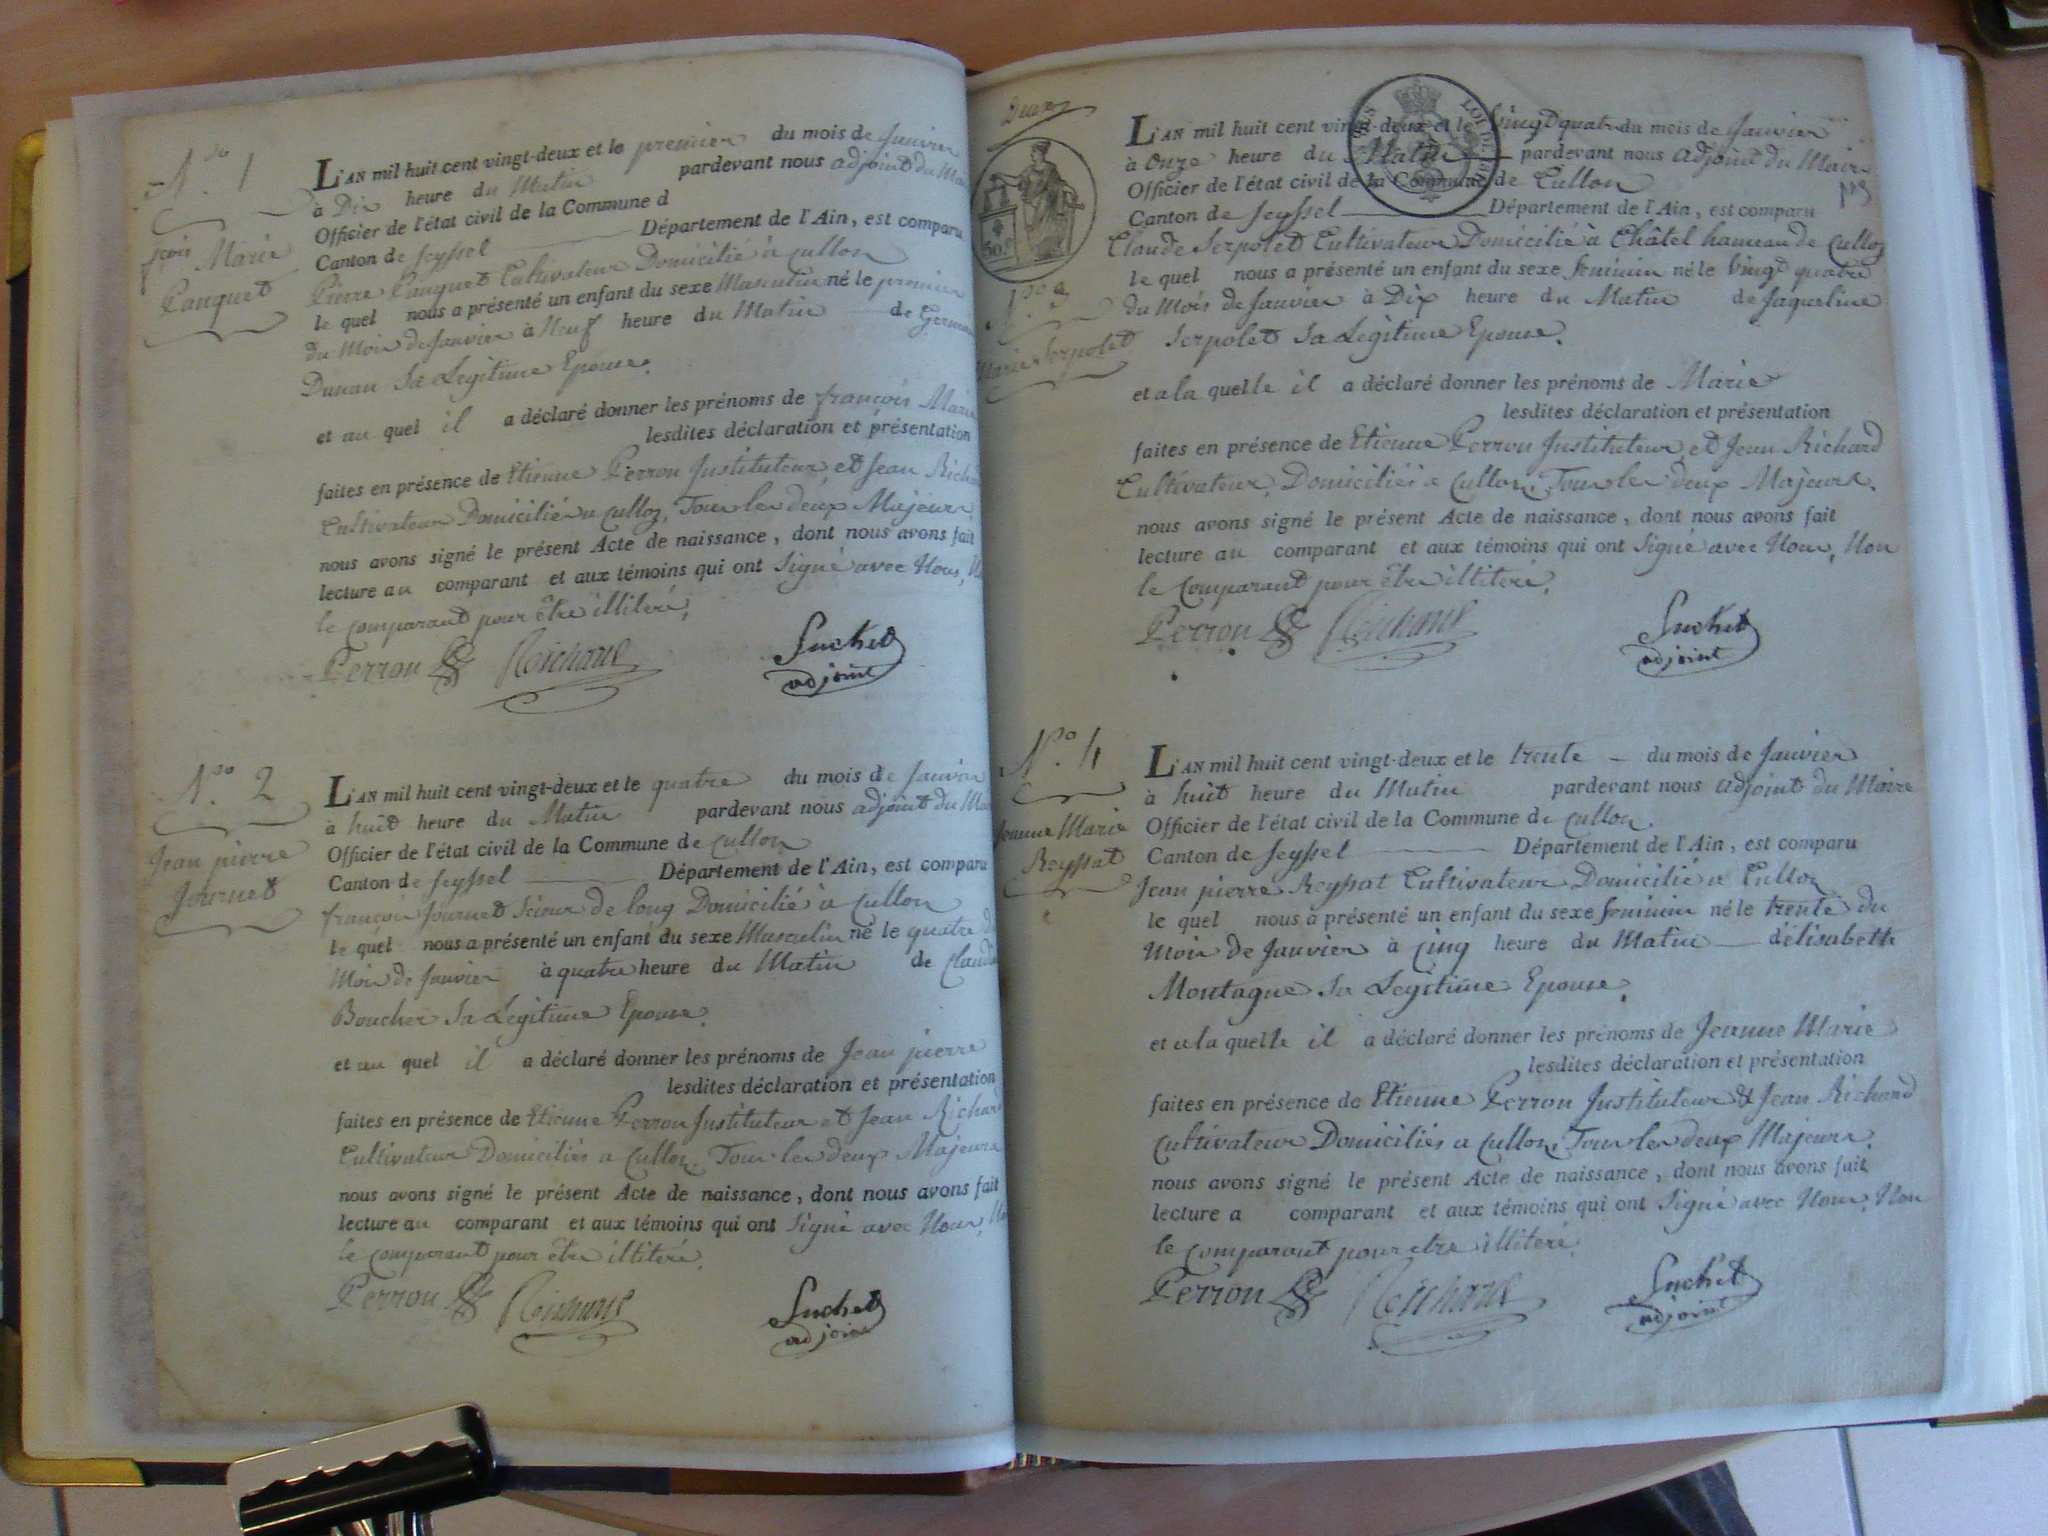 N.º 1
françois Marie
Panquet
L'AN mil huit cent vingt-deux et le premier du mois de Janvier
à Dix heure du Matin pardevant nous adjoint du
Officier de l'état civil de la Commune d
Canton de Seyssel Département de l'Ain, est comparu
Pierre Panquet Cultivateur Domicilié à Culloz
le quel nous a présenté un enfant du sexe Masculin né le premier
du Mois de Janvier à Neuf heure du Matin de
Dunan Sa Legitime Epouse.
et au quel il a déclaré donner les prénoms de françois Marie
lesdites déclaration et présentation
faites en présence de Etienne Perron Instituteur, et Jean
Cultivateur Domiciliés a Culloz, Tous les deux Majeurs.
nous avons signé le présent Acte de naissance, dont nous avons fait
lecture au comparant et aux témoins qui ont Signé avec Nous,
le comparant pour être illiteré.
Perron Richard Suchet
adjoint
N.º 2
Jean pierre
Journet
L'AN mil huit cent vingt-deux et le quatre du mois de Janvier
à huit heure du Matin pardevant nous adjoint du
Officier de l'état civil de la Commune de Culloz
Canton de Seyssel Département de l'Ain, est comparu
françois Journet Scieur de long Domicilié à Culloz
le quel nous a présenté un enfant du sexe Masculin né le quatre
Mois de Janvier à quatre heure du Matin de
Boucher Sa Legitime Epouse.
et au quel il a déclaré donner les prénoms de Jean pierre
lesdites déclaration et présentation
faites en présence de Etienne Perron Instituteur et Jean
Cultivateur Domiciliés a Culloz, Tous les deux Majeurs
nous avons signé le présent Acte de naissance, dont nous avons fait
lecture au comparant et aux témoins qui ont Signé avec Nous,
le comparant pour être illiteré.
Perron Richard Suchet
adjoint
Deux
50.c
LOI DE
N.º 3
Marie Serpolet
L'AN mil huit cent vingt-deux et le Vingt quatre du mois de Janvier
à Onze heure du Matin pardevant nous adjoint du Maire
Officier de l'état civil de la Commune de Culloz
Canton de Seyssel Département de l'Ain, est comparu
Claude Serpolet Cultivateur Domicilié à Châtel hameau de Culloz
le quel nous a présenté un enfant du sexe feminin né le Vingt quatre
du Mois de Janvier à Dix heure du Matin de Jaqueline
Serpolet Sa Legitime Epouse.
et a la quelle il a déclaré donner les prénoms de Marie
lesdites déclaration et présentation
faites en présence de Etienne Perron Instituteur, et Jean Richard
Cultivateur, Domiciliés a Culloz, Tous les deux Majeurs.
nous avons signé le présent Acte de naissance, dont nous avons fait
lecture au comparant et aux témoins qui ont Signé avec Nous, Non
le comparant pour être illiteré.
Perron Richard Suchet
adjoint
N.º 4
Jeanne Marie
Reyssat
L'AN mil huit cent vingt-deux et le trente du mois de Janvier
à huit heure du Matin pardevant nous adjoint du Maire
Officier de l'état civil de la Commune de Culloz.
Canton de Seyssel Département de l'Ain, est comparu
Jean pierre Reyssat Cultivateur Domicilié a Culloz
le quel nous a présenté un enfant du sexe feminin né le trente du
Mois de Janvier à Cinq heure du Matin d'élisabette
Montagne Sa Legitime Epouse.
et a la quelle il a déclaré donner les prénoms de Jeanne Marie
lesdites déclaration et présentation
faites en présence de Etienne Perron Instituteur & Jean Richard
Cultivateur Domiciliés a Culloz, Tous les deux Majeurs.
nous avons signé le présent Acte de naissance, dont nous avons fait
lecture a comparant et aux témoins qui ont Signé avec Nous, Non
le comparant pour etre illiteré.
Perron Richard Suchet
adjoint